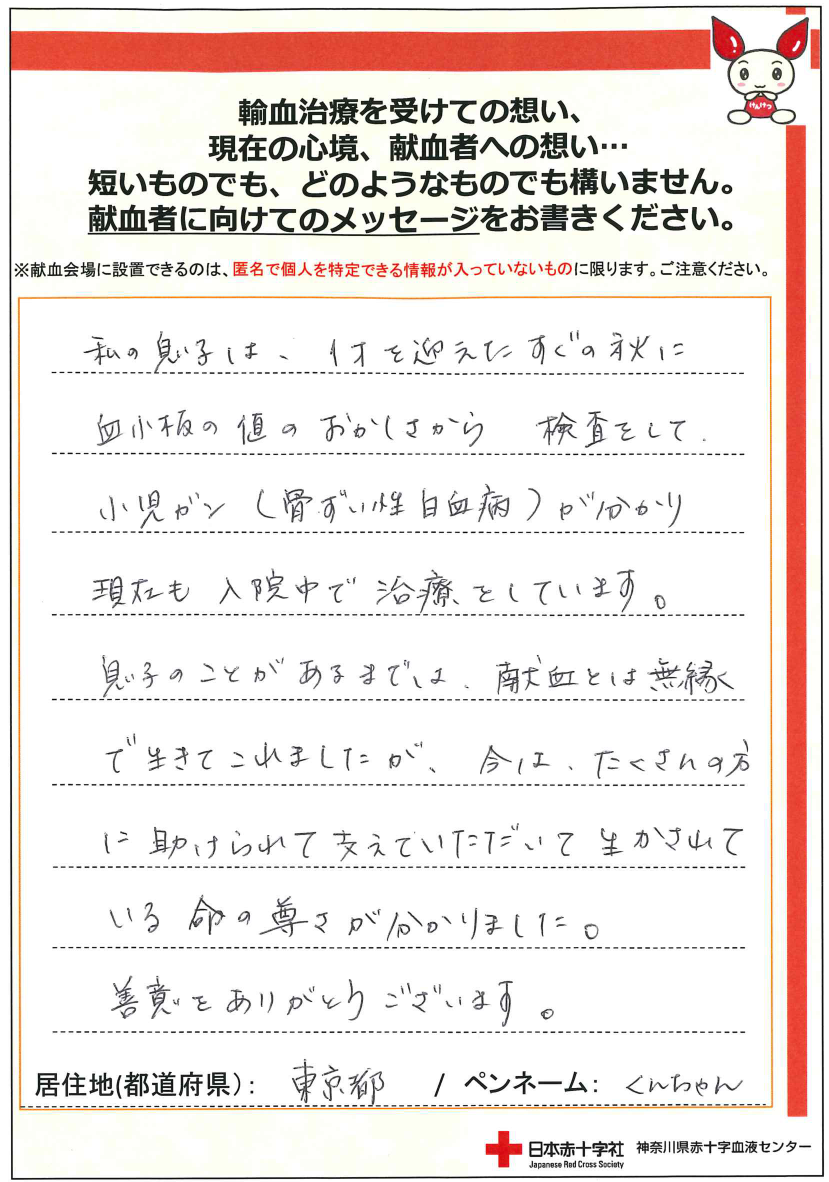 けんけつ
輸血治療を受けての想い、
現在の心境、献血者への想い…
短いものでも、どのようなものでも構いません。
献血者に向けてのメッセージをお書きください。
※献血会場に設置できるのは、匿名で個人を特定できる情報が入っていないものに限ります。ご注意ください。
私の息子は、1才を迎えたすぐの秋に
血小板の値のおかしさから 検査をして、
小児ガン(骨ずい性白血病)が分かり
現在も入院中で治療をしています。
息子のことがあるまでは、献血とは無縁
で生きてこれましたが、今は、たくさんの方
に助けられて支えていただいて生かされて
いる命の尊さが分かりました。
善意をありがとうございます。
居住地(都道府県): 東京都 / ペンネーム: くんちゃん
日本赤十字社 神奈川県赤十字血液センター
Japanese Red Cross Society